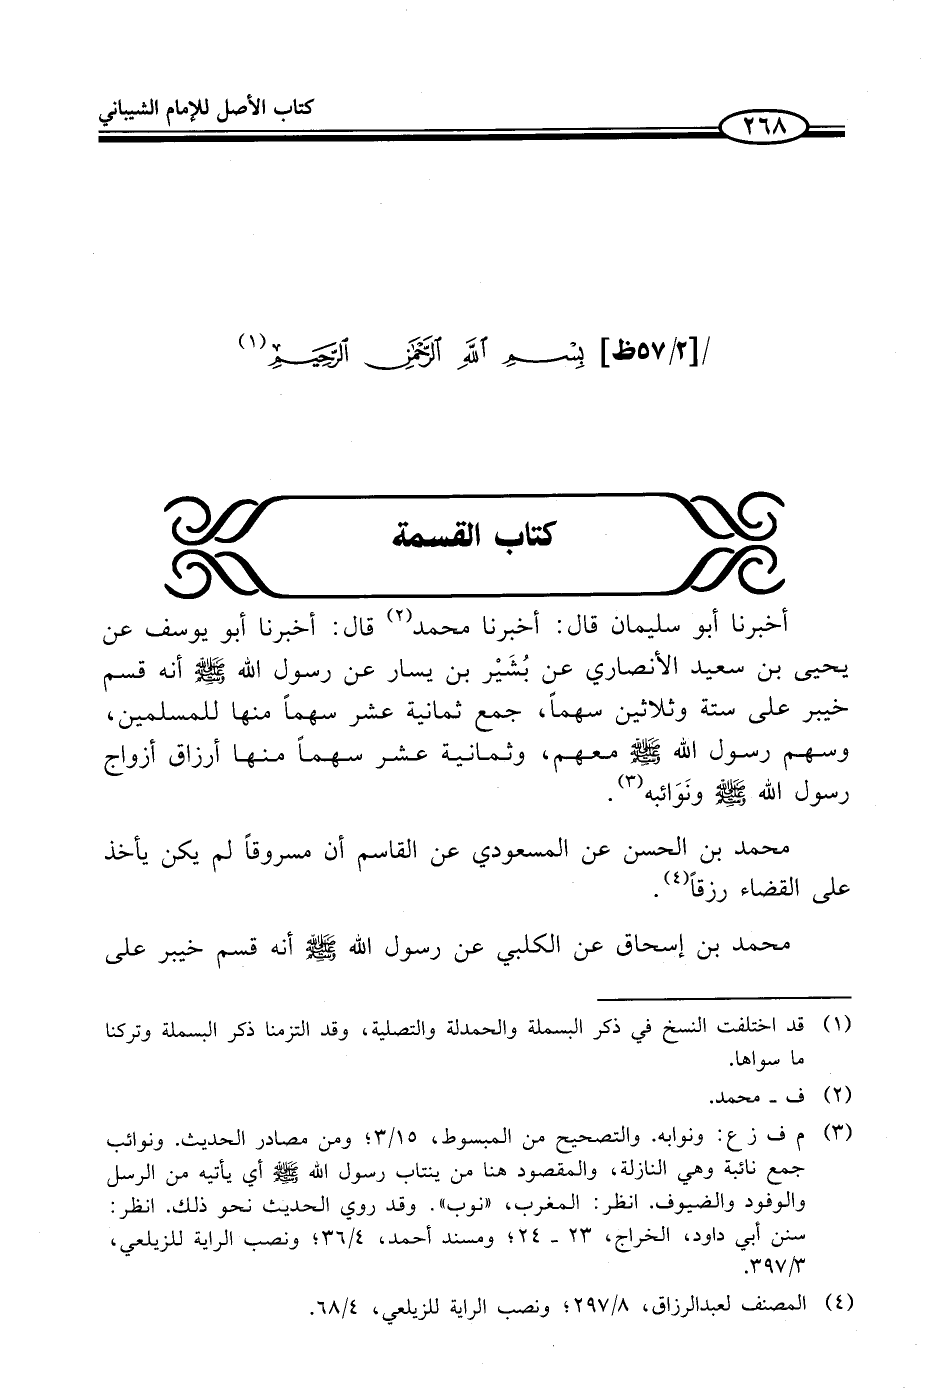 كتاب الأصل للإمام الشيباني
٢٦٨
/[٥٧/٢ظ] بِسْمِ اللَّهِ الرَّحْمَٰنِ الرَّحِيمِ(١)
كتاب القسمة
أخبرنا أبو سليمان قال: أخبرنا محمد(٢) قال: أخبرنا أبو يوسف عن
يحيى بن سعيد الأنصاري عن بُشَيْر بن يسار عن رسول الله ﷺ أنه قسم
خيبر على ستة وثلاثين سهماً، جمع ثمانية عشر سهماً منها للمسلمين،
وسهم رسول الله ﷺ معهم، وثمانية عشر سهماً منها أرزاق أزواج
رسول الله ﷺ ونَوَائبه(٣).
محمد بن الحسن عن المسعودي عن القاسم أن مسروقاً لم يكن يأخذ
على القضاء رزقاً(٤).
محمد بن إسحاق عن الكلبي عن رسول الله ﷺ أنه قسم خيبر على
(١) قد اختلفت النسخ في ذكر البسملة والحمدلة والتصلية، وقد التزمنا ذكر البسملة وتركنا
ما سواها.
(٢) ف ـ محمد.
(٣) م ف ز ع: ونوابه. والتصحيح من المبسوط، ٣/١٥؛ ومن مصادر الحديث. ونوائب
جمع نائبة وهي النازلة، والمقصود هنا من ينتاب رسول الله ﷺ أي يأتيه من الرسل
والوفود والضيوف. انظر: المغرب، «نوب». وقد روي الحديث نحو ذلك. انظر:
سنن أبي داود، الخراج، ٢٣ ـ ٢٤؛ ومسند أحمد، ٣٦/٤؛ ونصب الراية للزيلعي،
٣٩٧/٣.
(٤) المصنف لعبدالرزاق، ٢٩٧/٨؛ ونصب الراية للزيلعي، ٦٨/٤.